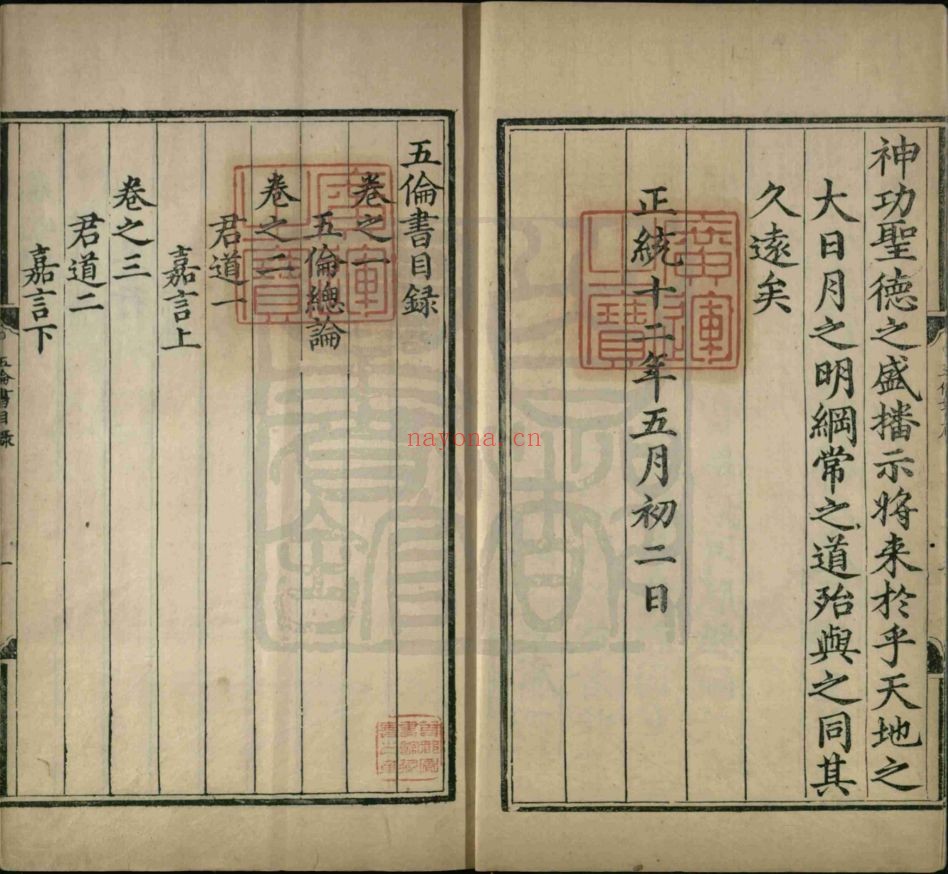 神功聖德之盛播示將来於乎天地之
大日月之明綱常之道殆與之同其
久遠矣
正統十二年五月初二日
廣運
之寶
五倫書目録
卷之一
五倫總論
卷之二
君道一
嘉言上
卷之三
君道二
嘉言下
廣運
之寶
五倫書目録
一
nayona.cn